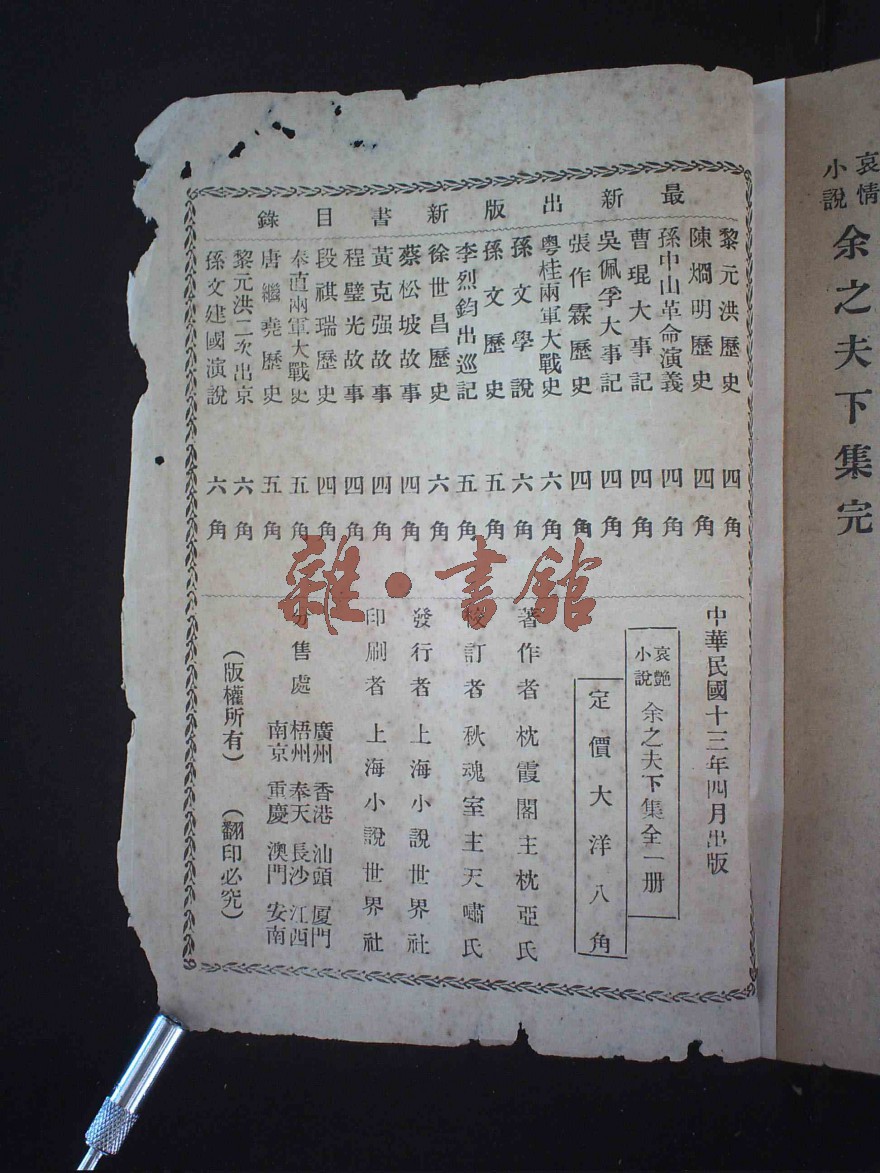 哀情小說 余之夫下集完
最新出版新書目錄
黎元洪歷史 四角
陳烱明歷史 四角
孫中山革命演義 四角
曹琨大事記 四角
吳佩孚大事記 四角
張作霖歷史 四角
粵桂兩軍大戰史 六角
孫文學說 六角
孫文歷史 五角
李烈鈞出巡記 五角
徐世昌歷史 六角
蔡松坡故事 四角
黃克强故事 四角
程璧光故事 四角
段祺瑞歷史 四角
奉直兩軍大戰史 五角
唐繼堯歷史 五角
黎元洪二次出京 六角
孫文建國演說 六角
中華民國十三年四月出版
哀艷小說 余之夫下集全一册
定價大洋八角
著作者 枕霞閣主枕亞氏
校訂者 秋魂室主天嘯氏
發行者 上海小說世界社
印刷者 上海小說世界社
分售處
廣州 香港 汕頭 厦門
梧州 奉天 長沙 江西
南京 重慶 澳門 安南
(版權所有) (翻印必究)
雜·書館